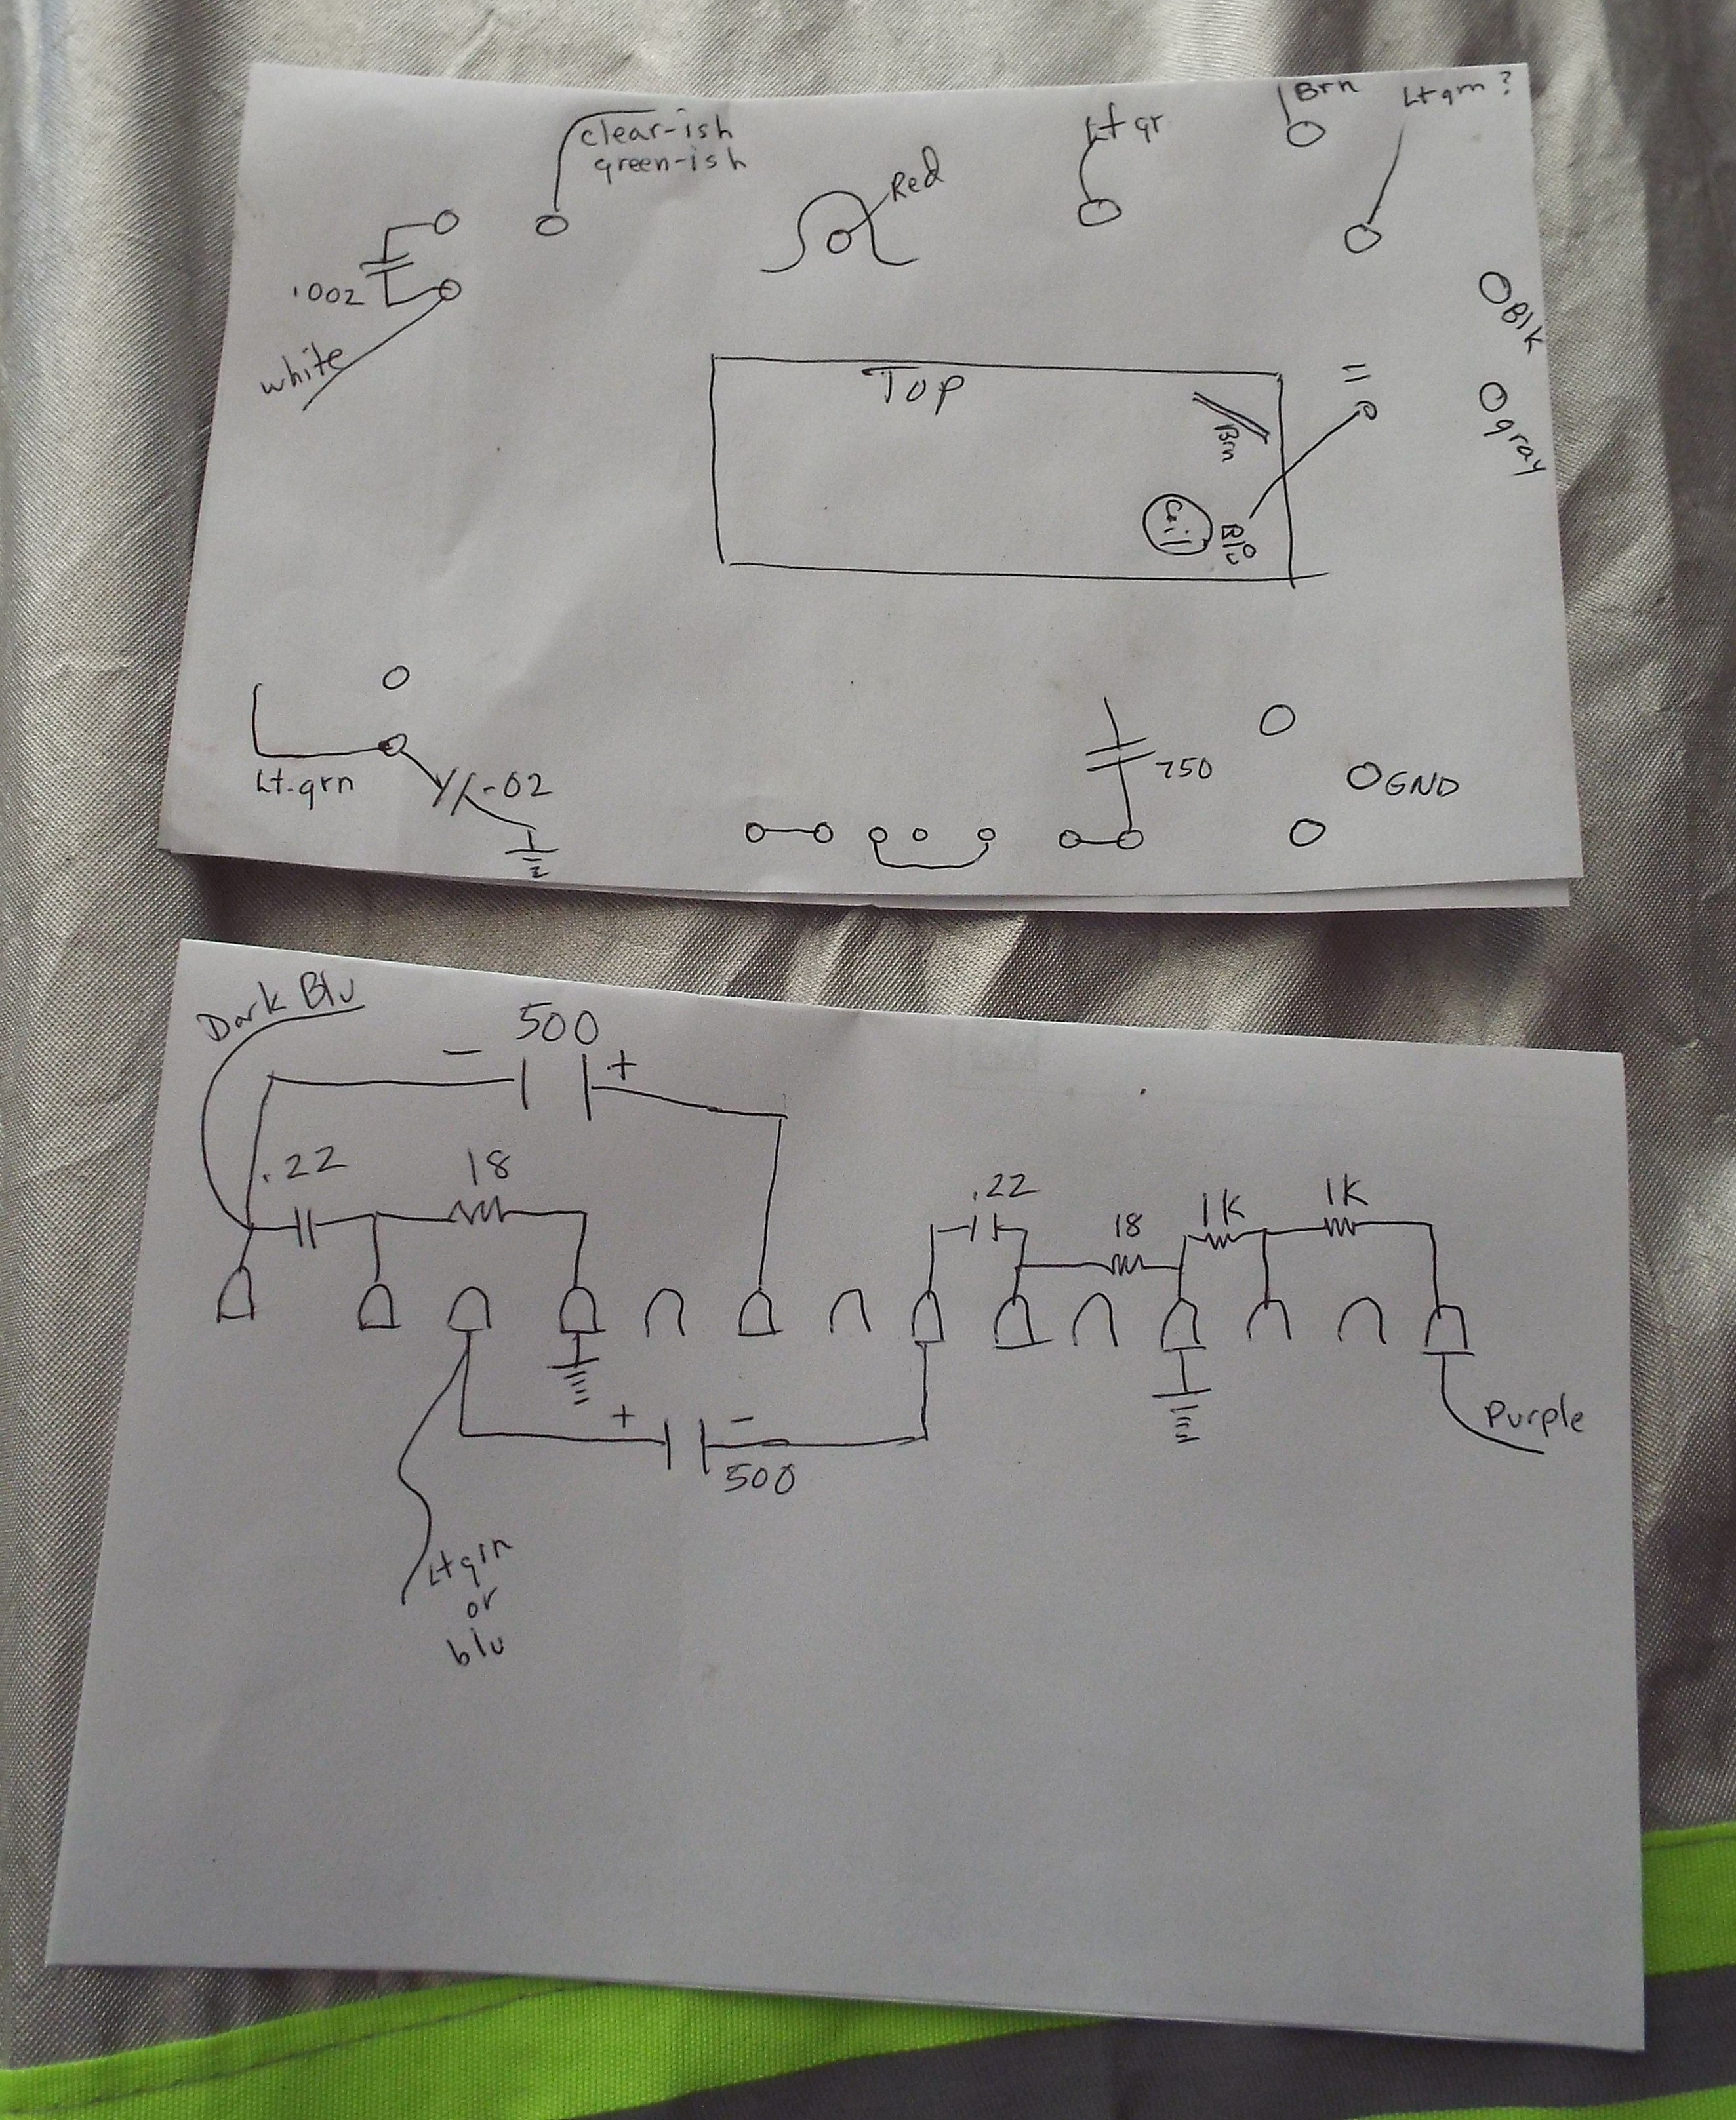 clear-ish
green-ish
Red
Lt gr
Brn
Lt grn ?
.002
white
TOP
Brn
Coil
Blu
Blk
gray
Lt-grn
.02
750
GND
Dark Blu
500
-
+
.22
18
.22
18
1K
1K
+
-
500
Purple
Lt grn
or
blu